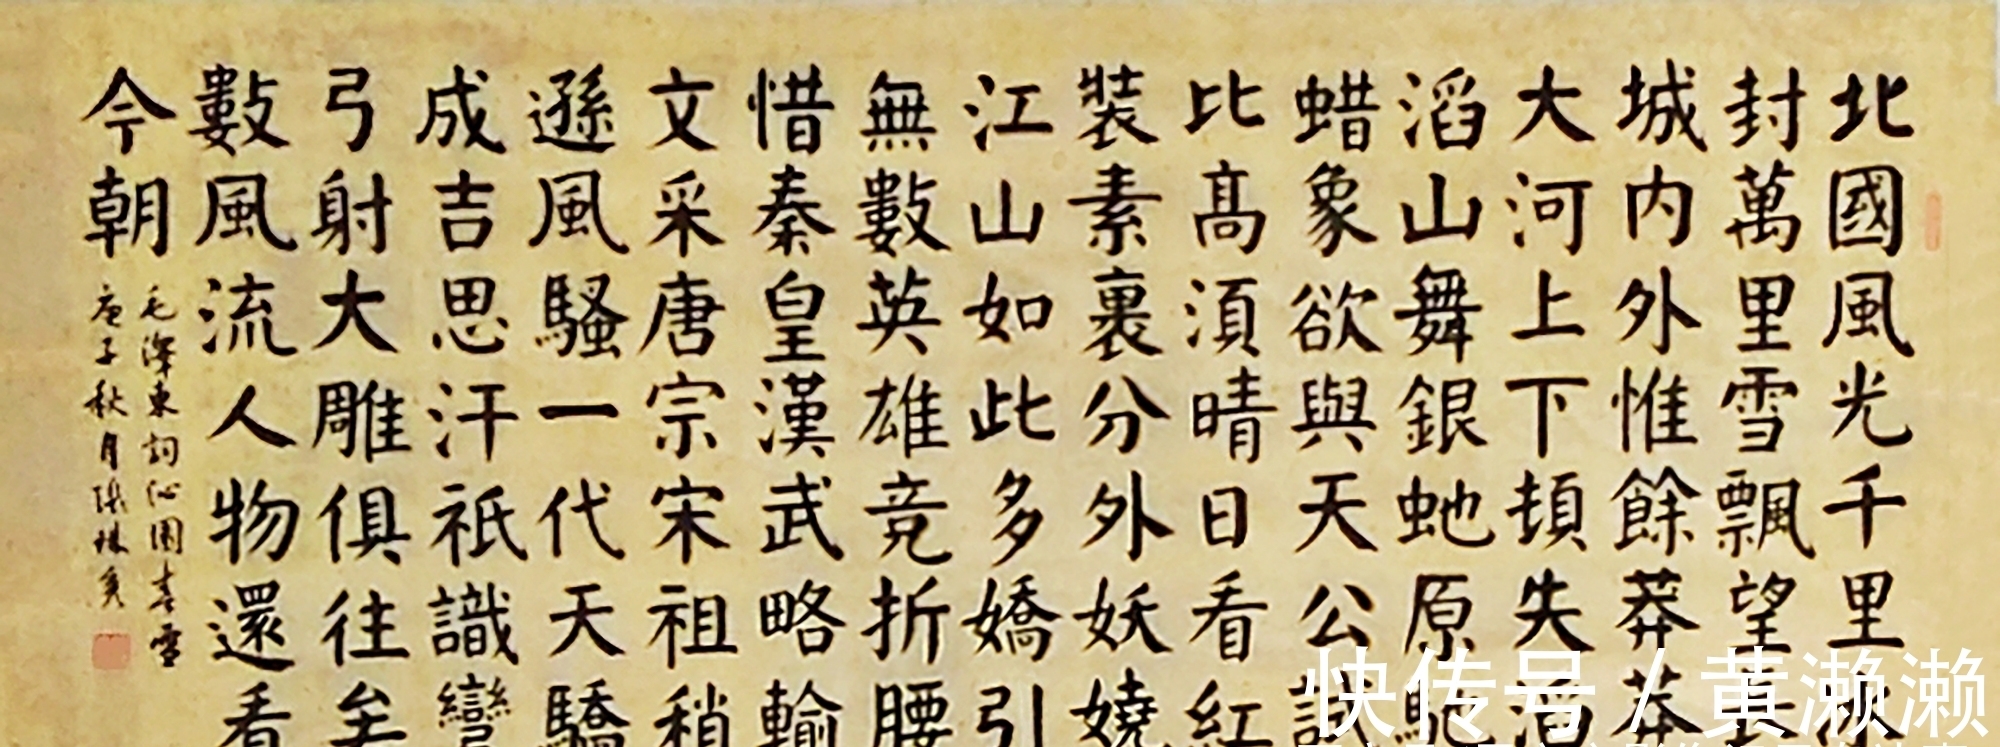 北國風光千里冰
封萬里雪飄望長
城内外惟餘莽莽
大河上下頓失滔
滔山舞銀虵原馳
蜡象欲與天公試
比髙湏晴日看紅
裝素裹分外妖嬈
江山如此多嬌引
無數英雄竞折腰
惜秦皇漢武略輸
文采唐宗宋祖稍
遜風騷一代天驕
成吉思汗祇識彎
弓射大雕俱往矣
數風流人物還看
今朝
毛澤東詞沁園春雪
庚子秋月張
快传号/黄濑濑